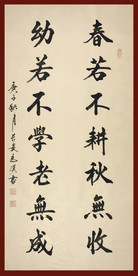 春若不耕秋無收
幼若不學老無成
庚子秋月